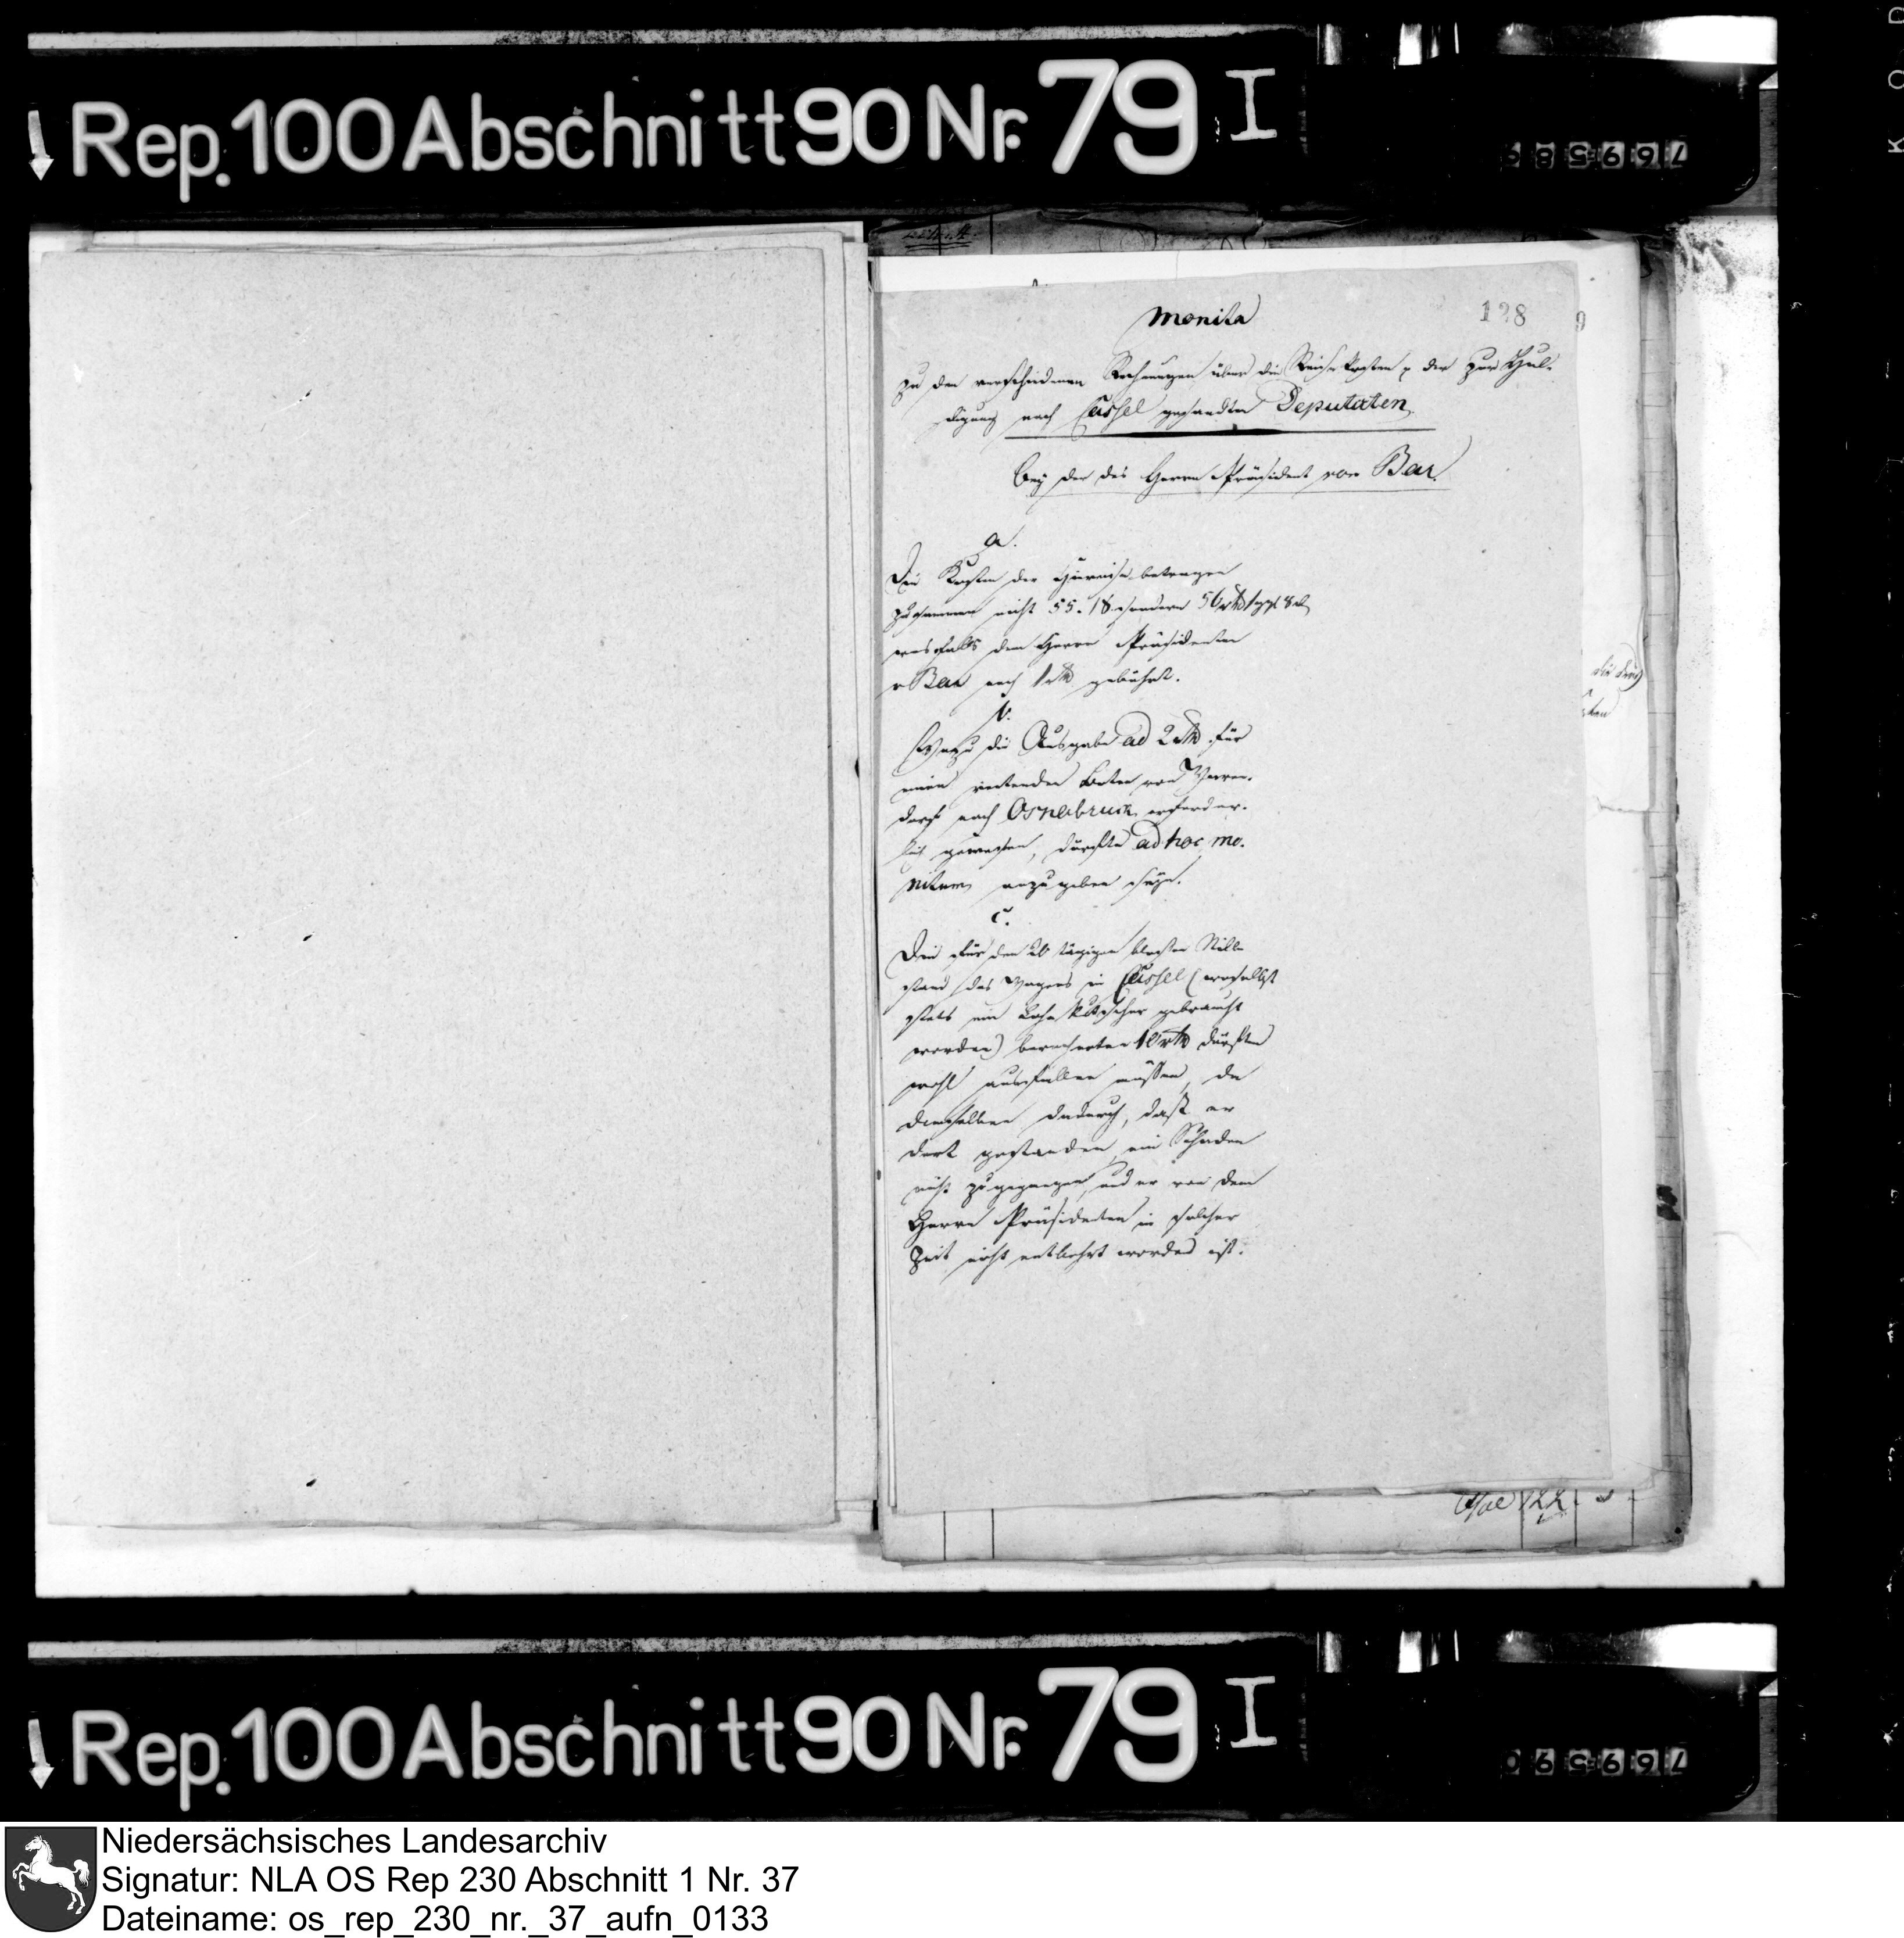 Rep. 100 Abschnitt 90 Nr. 79 I
769589
128
Monita
zu den verschiedenen Rechnungen über die Reisekosten der zur Hul-
digung nach Cassel gesandten Deputaten.
Bey der des Herrn Präsident von Bar.
a.
Die Kosten der Herreise betragen
zusammen nicht 55. 18 sondern 56 rth 1 ggl 8 d
weshalb dem Herrn Präsidenten
v Bar noch 1 rth gebührt.
b.
Wozu die Ausgabe ad 2 rth für
einen reitenden Boten von Waren-
dorf nach Osnabruck erforder-
lich gewesen, dürfte ad hoc mo-
nitum anzugeben seyn.
c.
Die für den 26 tägigen blossen Still-
stand des Wagens in Cassel (woselbst
stets ein Lohnkutscher gebraucht
worden) berechneten 10 rth dürften
wohl ausfallen müssen, da
demselben dadurch, dass er
dort gestanden ein Schaden
nicht zugegangen, und er von dem
Herrn Präsidenten in solcher
Zeit nicht entbehrt worden ist.
122
Rep. 100 Abschnitt 90 Nr. 79 I
769590
Niedersächsisches Landesarchiv
Signatur: NLA OS Rep 230 Abschnitt 1 Nr. 37
Dateiname: os_rep_230_nr._37_aufn_0133